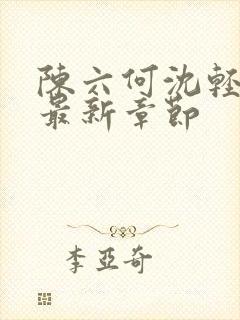 陳六何沈輕
最新章節
李亞奇